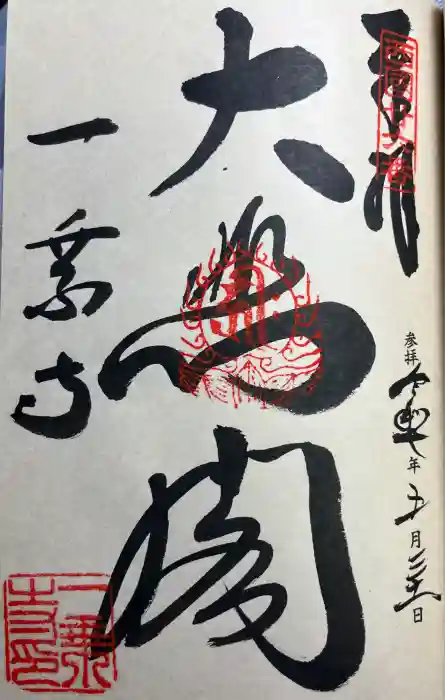 奉拝
西国廿六番
大悲閣
一乗寺
参拝 令和 年 五月 日
一乗寺印